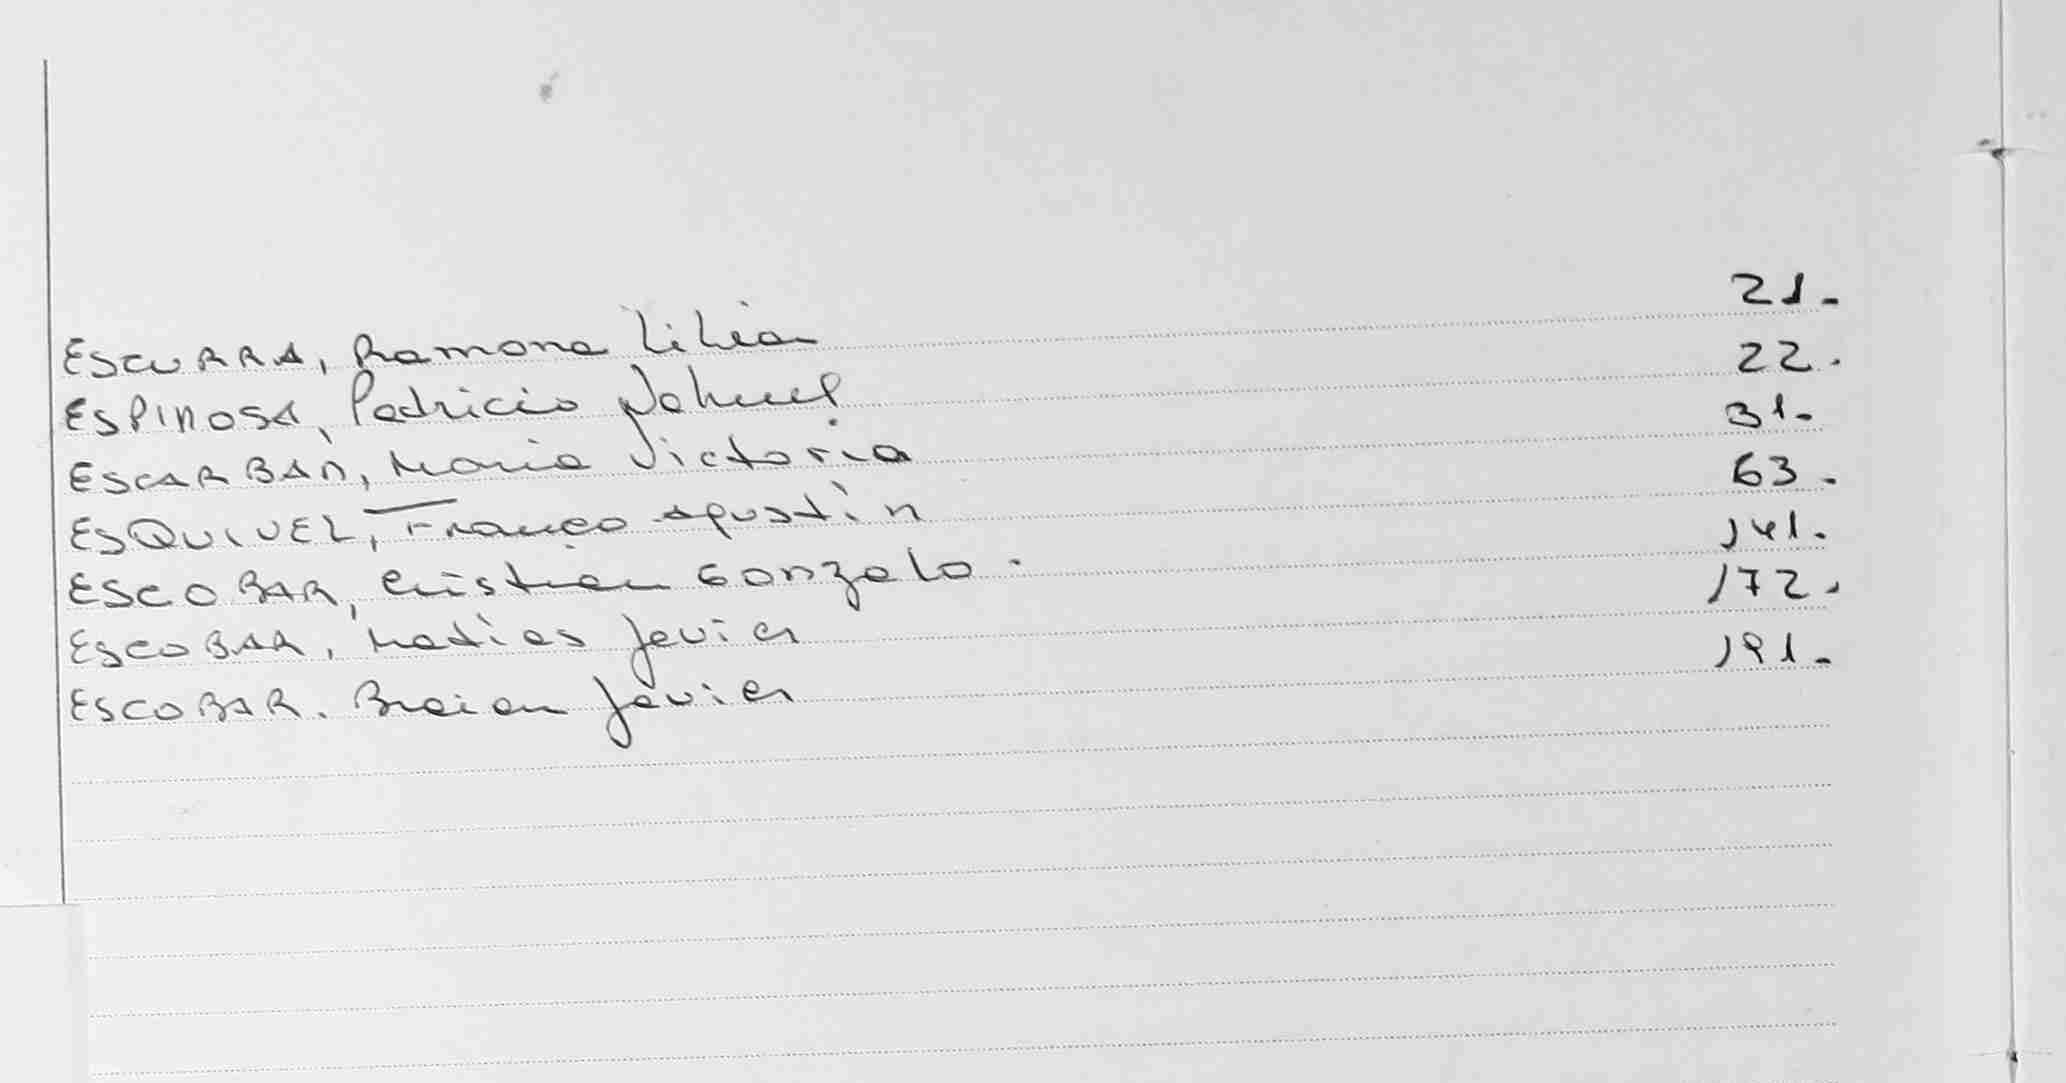 ESCURRA, Ramona Lilian 21.
ESPINOSA, Patricio Nahuel 22.
ESCARBAN, Maria Victoria 31.
ESQUIVEL, Franco Agustin 63.
ESCOBAR, Cristian Gonzalo. 141.
ESCOBAR, Matias Javier 172.
ESCOBAR. Braian Javier 191.